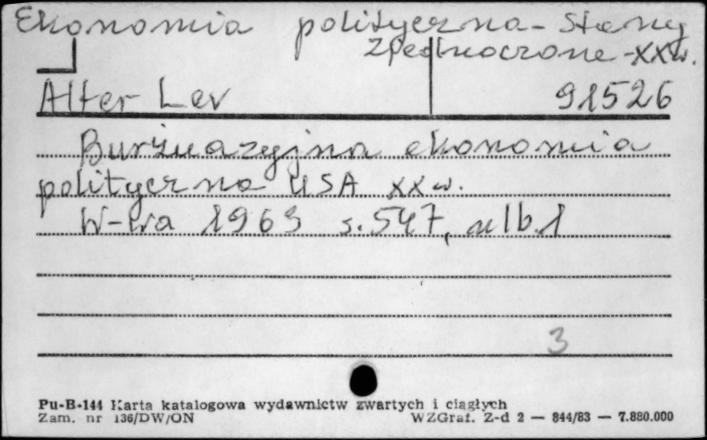 Ekonomia polityczna - Stany
Zjednoczone - XX w.
Alter Lev 91526
Burżuazyjna ekonomia
polityczna USA XX w.
W-wa 1963 s. 547, nlb. 1
3
Pu-B-144 Karta katalogowa wydawnictw zwartych i ciągłych
Zam. nr 136/DW/ON WZGraf. Z-d 2 — 844/83 — 7.880.000